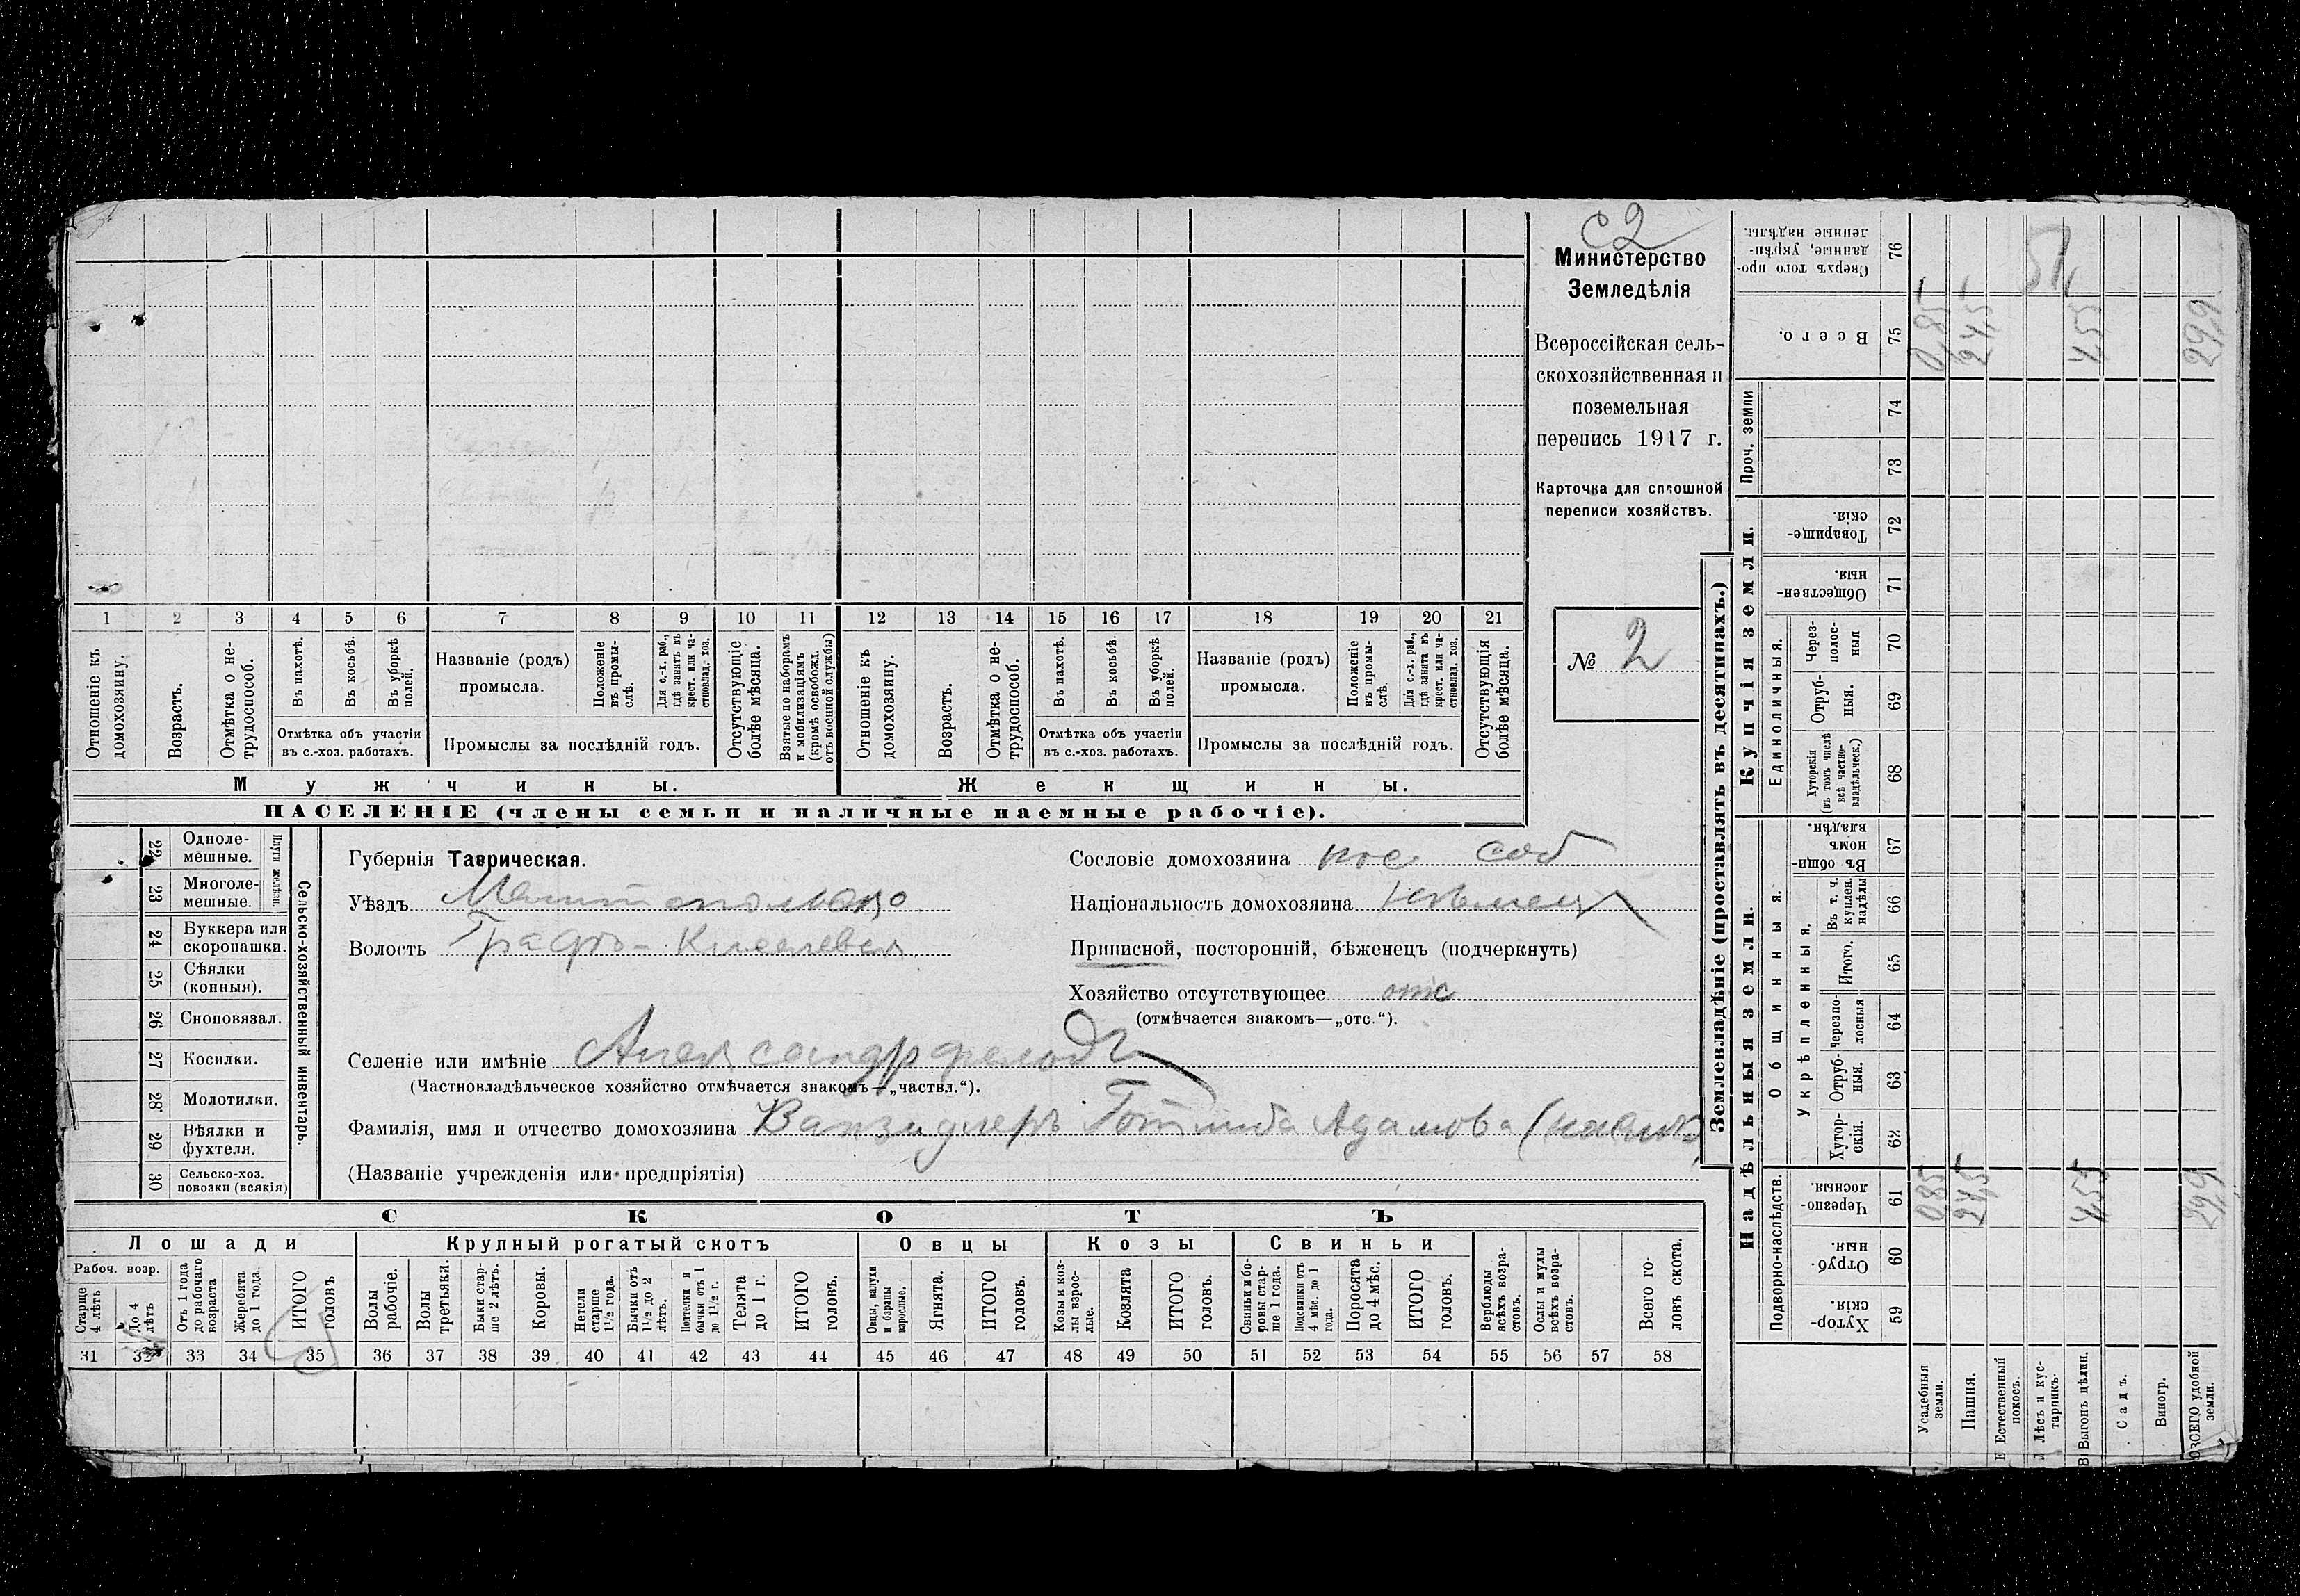 с2
Министерство
Земледѣлія
Всероссійская сель-
скохозяйственная и
поземельная
перепись 1917 г.
Карточка для сплошной
переписи хозяйствъ.
№ 2
1 2 3 4 5 6 7 8 9 10 11 12 13 14 15 16 17 18 19 20 21
Отношеніе къ домохозяину.
Возрастъ.
Отмѣтка о не-
трудоспособ.
Въ пахотѣ.
Въ косьбѣ.
Въ уборкѣ полей.
Отмѣтка объ участіи
въ с.-хоз. работахъ.
Названіе (родъ)
промысла.
Положеніе
въ промы-
слѣ.
Для с.-х. раб.,
гдѣ занятъ въ
крест. или ча-
стновлад. хоз.
Промыслы за послѣдній годъ.
Отсутствующіе
болѣе мѣсяца.
Взятые по наборамъ
и мобилизаціямъ
(кромѣ освобожд.
отъ военной службы)
Отношеніе къ
домохозяину.
Возрастъ.
Отмѣтка о не-
трудоспособ.
Въ пахотѣ.
Въ косьбѣ.
Въ уборкѣ
полей.
Отмѣтка объ участіи
въ с.-хоз. работахъ.
Названіе (родъ)
промысла.
Положеніе
въ промы-
слѣ.
Для с.-х. раб.,
гдѣ занята въ
крест. или ча-
стновлад. хоз.
Промыслы за послѣдній годъ.
Отсутствующія
болѣе мѣсяца.
Мужчины.
Женщины.
НАСЕЛЕНІЕ (члены семьи и наличные наемные рабочіе).
22 Одноле-
мешные.
23 Многоле-
мешные.
Плуги желѣзн.
24 Буккера или
скоропашки.
25 Сѣялки
(конныя).
26 Сноповязал.
27 Косилки.
28 Молотилки.
29 Вѣялки и
фухтеля.
30 Сельско-хоз.
повозки (всякія)
Сельско-хозяйственный инвентарь.
Губернія Таврическая.
Уѣздъ
Волость
Сословіе домохозяина пос соб
Національность домохозяина нѣмецъ
Приписной, посторонній, бѣженецъ (подчеркнуть)
Хозяйство отсутствующее отс
(отмѣчается знакомъ—„отс.“).
Селеніе или имѣніе Александрфельдъ
(Частновладѣльческое хозяйство отмѣчается знакомъ—„частвл.“).
Фамилія, имя и отчество домохозяина Готлиба Адамова
(Названіе учрежденія или предпріятія)
СКОТЪ
Лошади
Крупный рогатый скотъ
Овцы
Козы
Свиньи
Рабоч. возр.
Старше
4 лѣтъ
До 4
лѣтъ
Отъ 1 года
до рабочаго
возраста
Жеребята
до 1 года.
ИТОГО
головъ
Волы
рабочіе.
Волы
третьяки.
Быки стар-
ше 2 лѣтъ.
Коровы.
Нетели
старше
1½ года.
Бычки отъ
1½ до 2
лѣтъ.
Подтелки и
бычки отъ 1
до 1½ г.
Телята
до 1 г.
ИТОГО
головъ.
Овцы, валухи
и бараны
взрослые.
Ягнята.
ИТОГО
головъ.
Козы и коз-
лы взрос-
лые.
Козлята
ИТОГО
головъ.
Свиньи и бо-
ровы стар-
ше 1 года.
Подсвинки отъ
4 мѣс. до 1
года.
Поросята
до 4 мѣс.
ИТОГО
головъ.
Верблюды
всѣхъ возра-
стовъ.
Ослы и мулы
всѣхъ возра-
стовъ.
Всего го-
ловъ скота.
31 32 33 34 35 36 37 38 39 40 41 42 43 44 45 46 47 48 49 50 51 52 53 54 55 56 57 58
Землевладѣніе (проставлять въ десятинахъ.)
Купчія земли.
Проч. земли
Единоличныя.
Надѣльныя земли.
Общинныя.
Укрѣпленныя.
Подворно-наслѣдств.
Сверхъ того про-
данные, укрѣп-
ленные надѣлы.
76
Всего.
75
0,85
24,5
4,55
29,9
74
73
Товарище-
скія.
72
Обществен-
ныя.
71
Через-
полос-
ныя
70
Отруб-
ныя.
69
Хуторскія
(въ томъ числѣ
всѣ частно-
владѣльческ.)
68
Въ общин-
номъ
владѣн.
67
Въ т. ч.
куплен.
надѣлы
66
Итого.
65
Черезпо-
лосныя
64
Отруб-
ныя.
63
Хутор-
скія.
62
Черезпо-
лосныя.
61
0,85
24,5
4,55
29,9
Отруб-
ныя.
60
Хутор-
скія.
59
Усадебныя
земли.
Пашня.
Естественный
покосъ.
Лѣсъ и кус-
тарникъ.
Выгонъ цѣлин.
Садъ.
Виногр.
ВСЕГО удобной
земли.